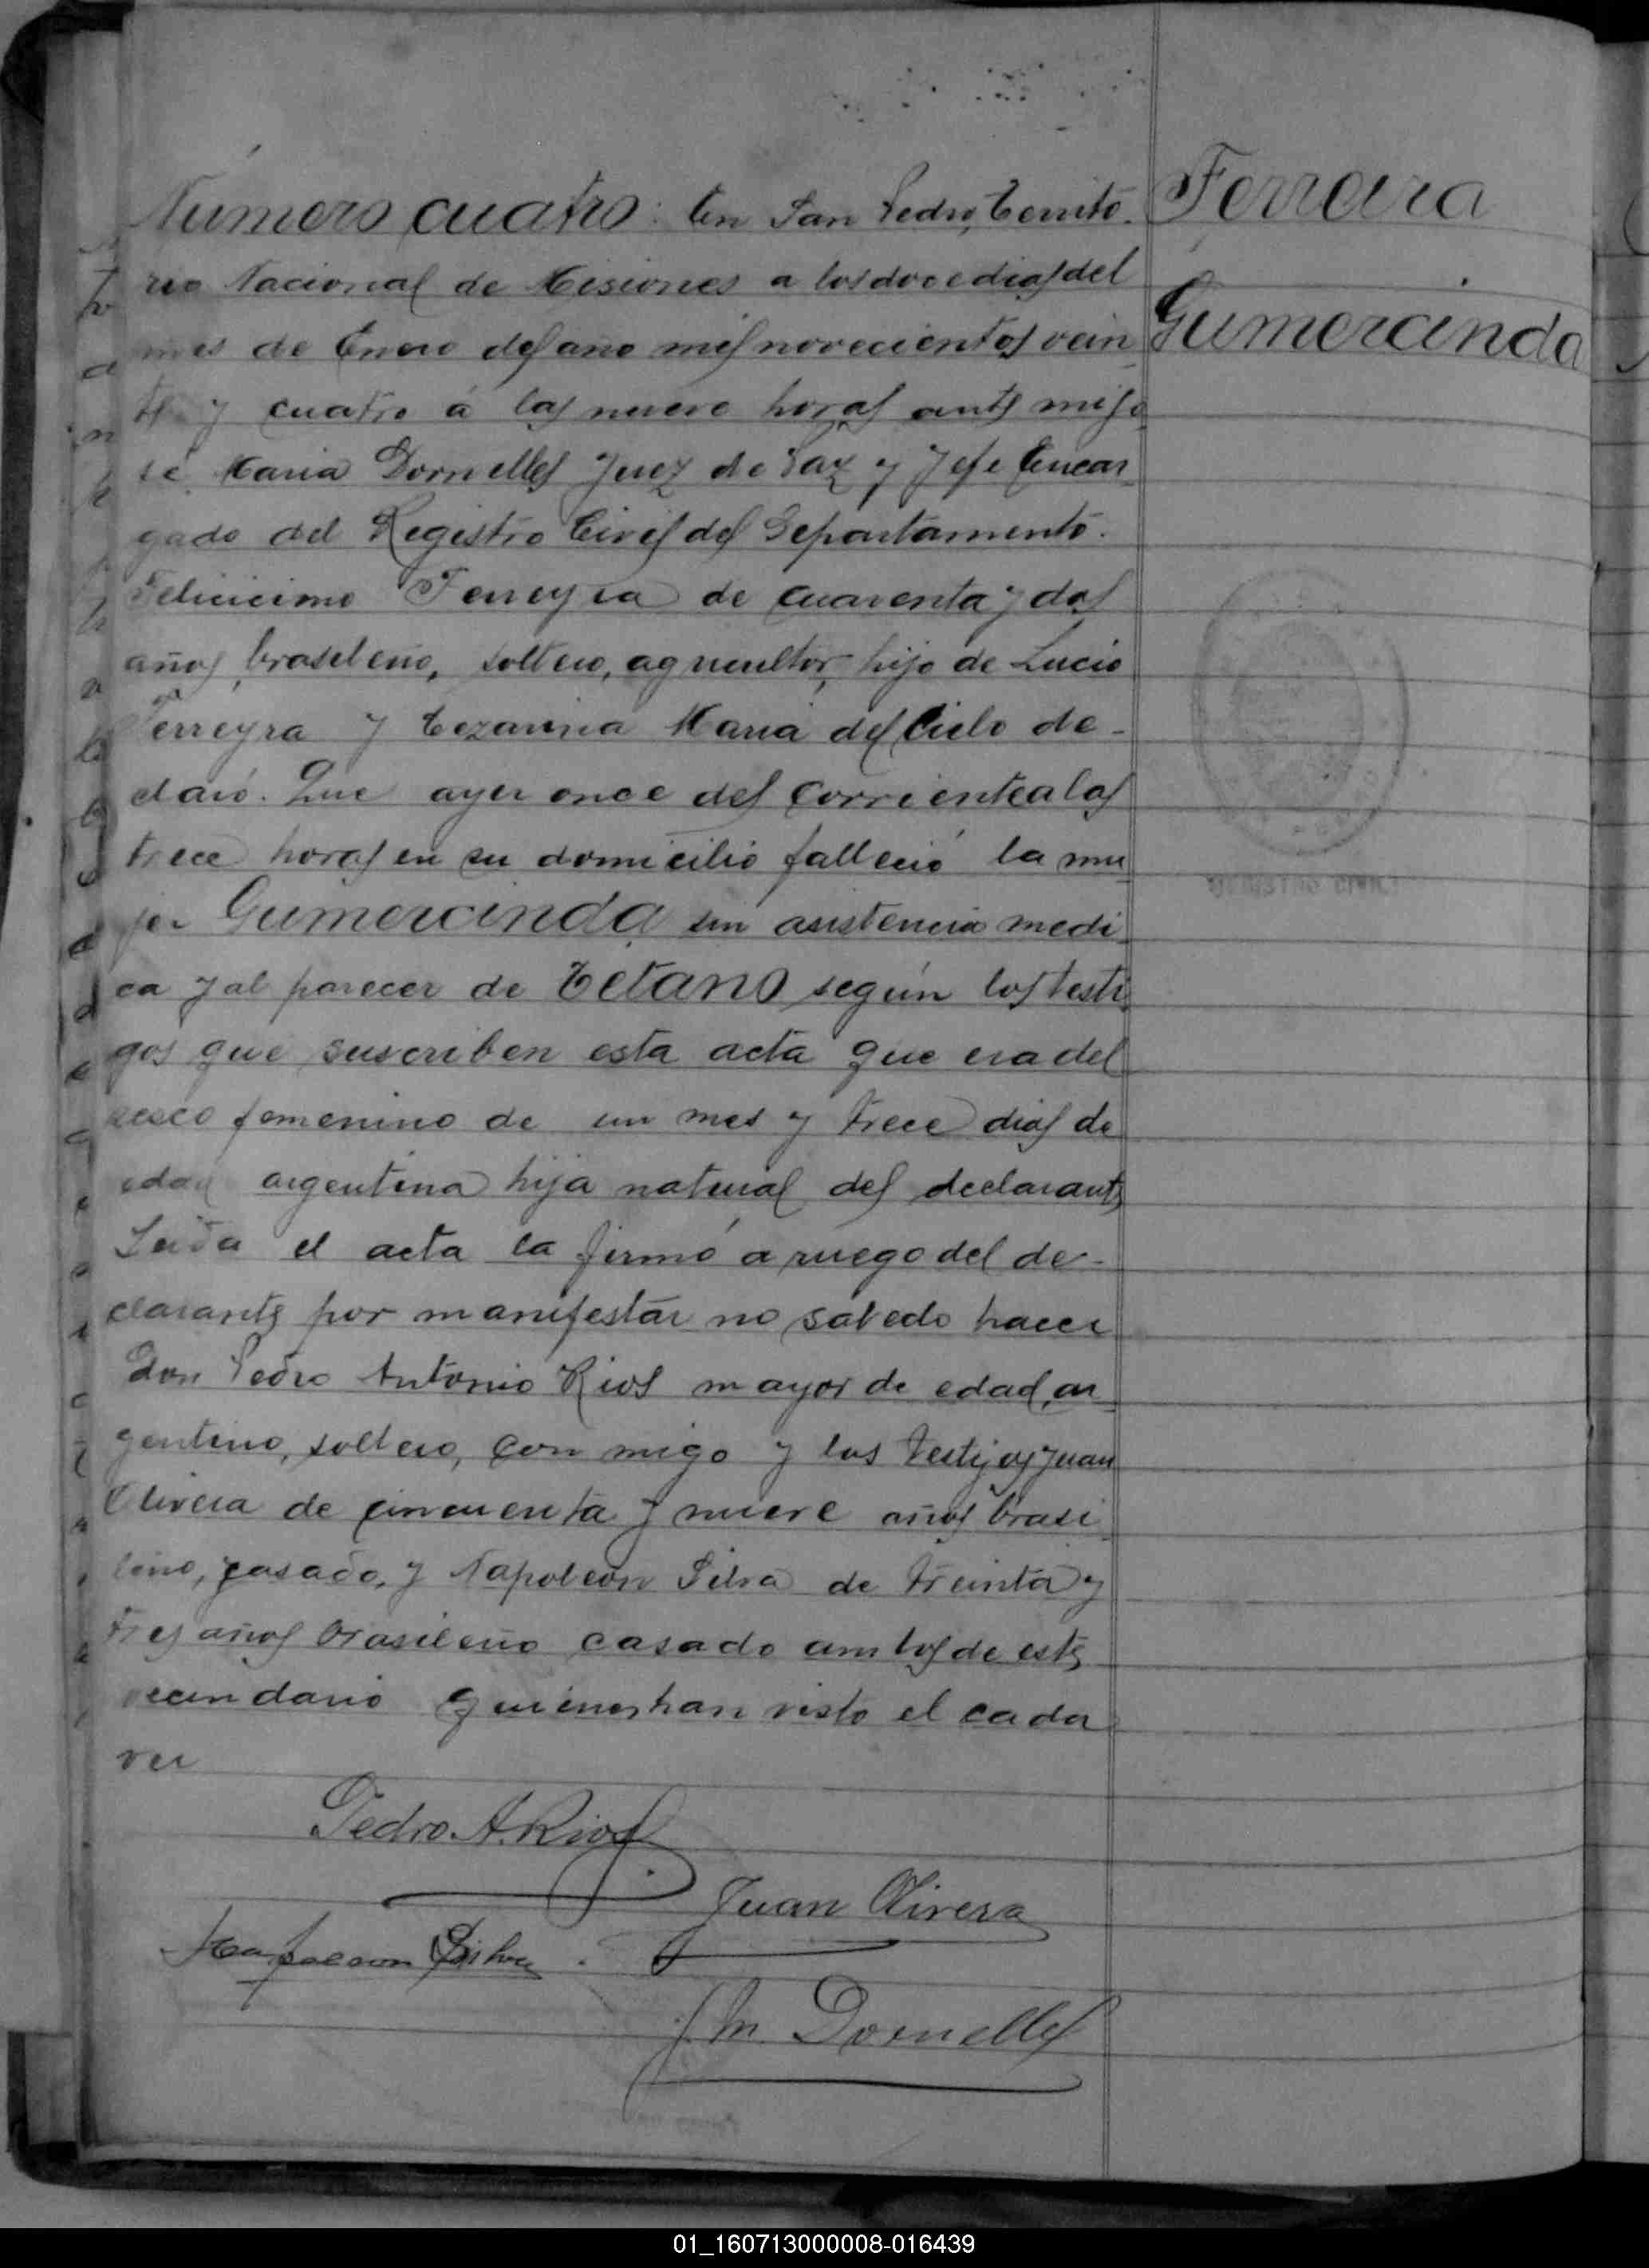 Número cuatro: En San Pedro, Territo-
rio Nacional de Misiones a los doce dias del
mes de Enero del año mil novecientos vein
te y cuatro á las nueve horas ante mi Jo
sé Maria Dornelles Juez de Paz y Jefe Encar
gado del Registro Civil del Departamento.
Felicicimo Ferreyra de cuarenta y dos
años, brasileño, soltero, agricultor, hijo de Lucio
Ferreyra y Cezarina Maria del Cielo de-
claró. Que ayer once del corriente a las
trece horas en su domicilio falleció la mu
jer Gumercinda sin asistencia medi
ca y al parecer de Tétano según los testi
gos que suscriben esta acta que era del
sexo femenino de un mes y trece dias de
edad argentina hija natural del declarante
Leida el acta la firmó a ruego del de-
clarante por manifestar no sabedo hacer
Don Pedro Antonio Rios mayor de edad, ar
gentino, soltero, con migo y los testijos Juan
Olivera de cincuenta y nueve años brasi
leño, casado, y Napoleón Silva de treinta y
tres años brasileño casado ambos de este
vecindario quienes han visto el cada
ver
Pedro. A. Rios
Juan Olivera
Napoleon Silva
J. M. Dornelles
Ferreira
Gumercinda
REGISTRO CIVIL
01_160713000008-016439